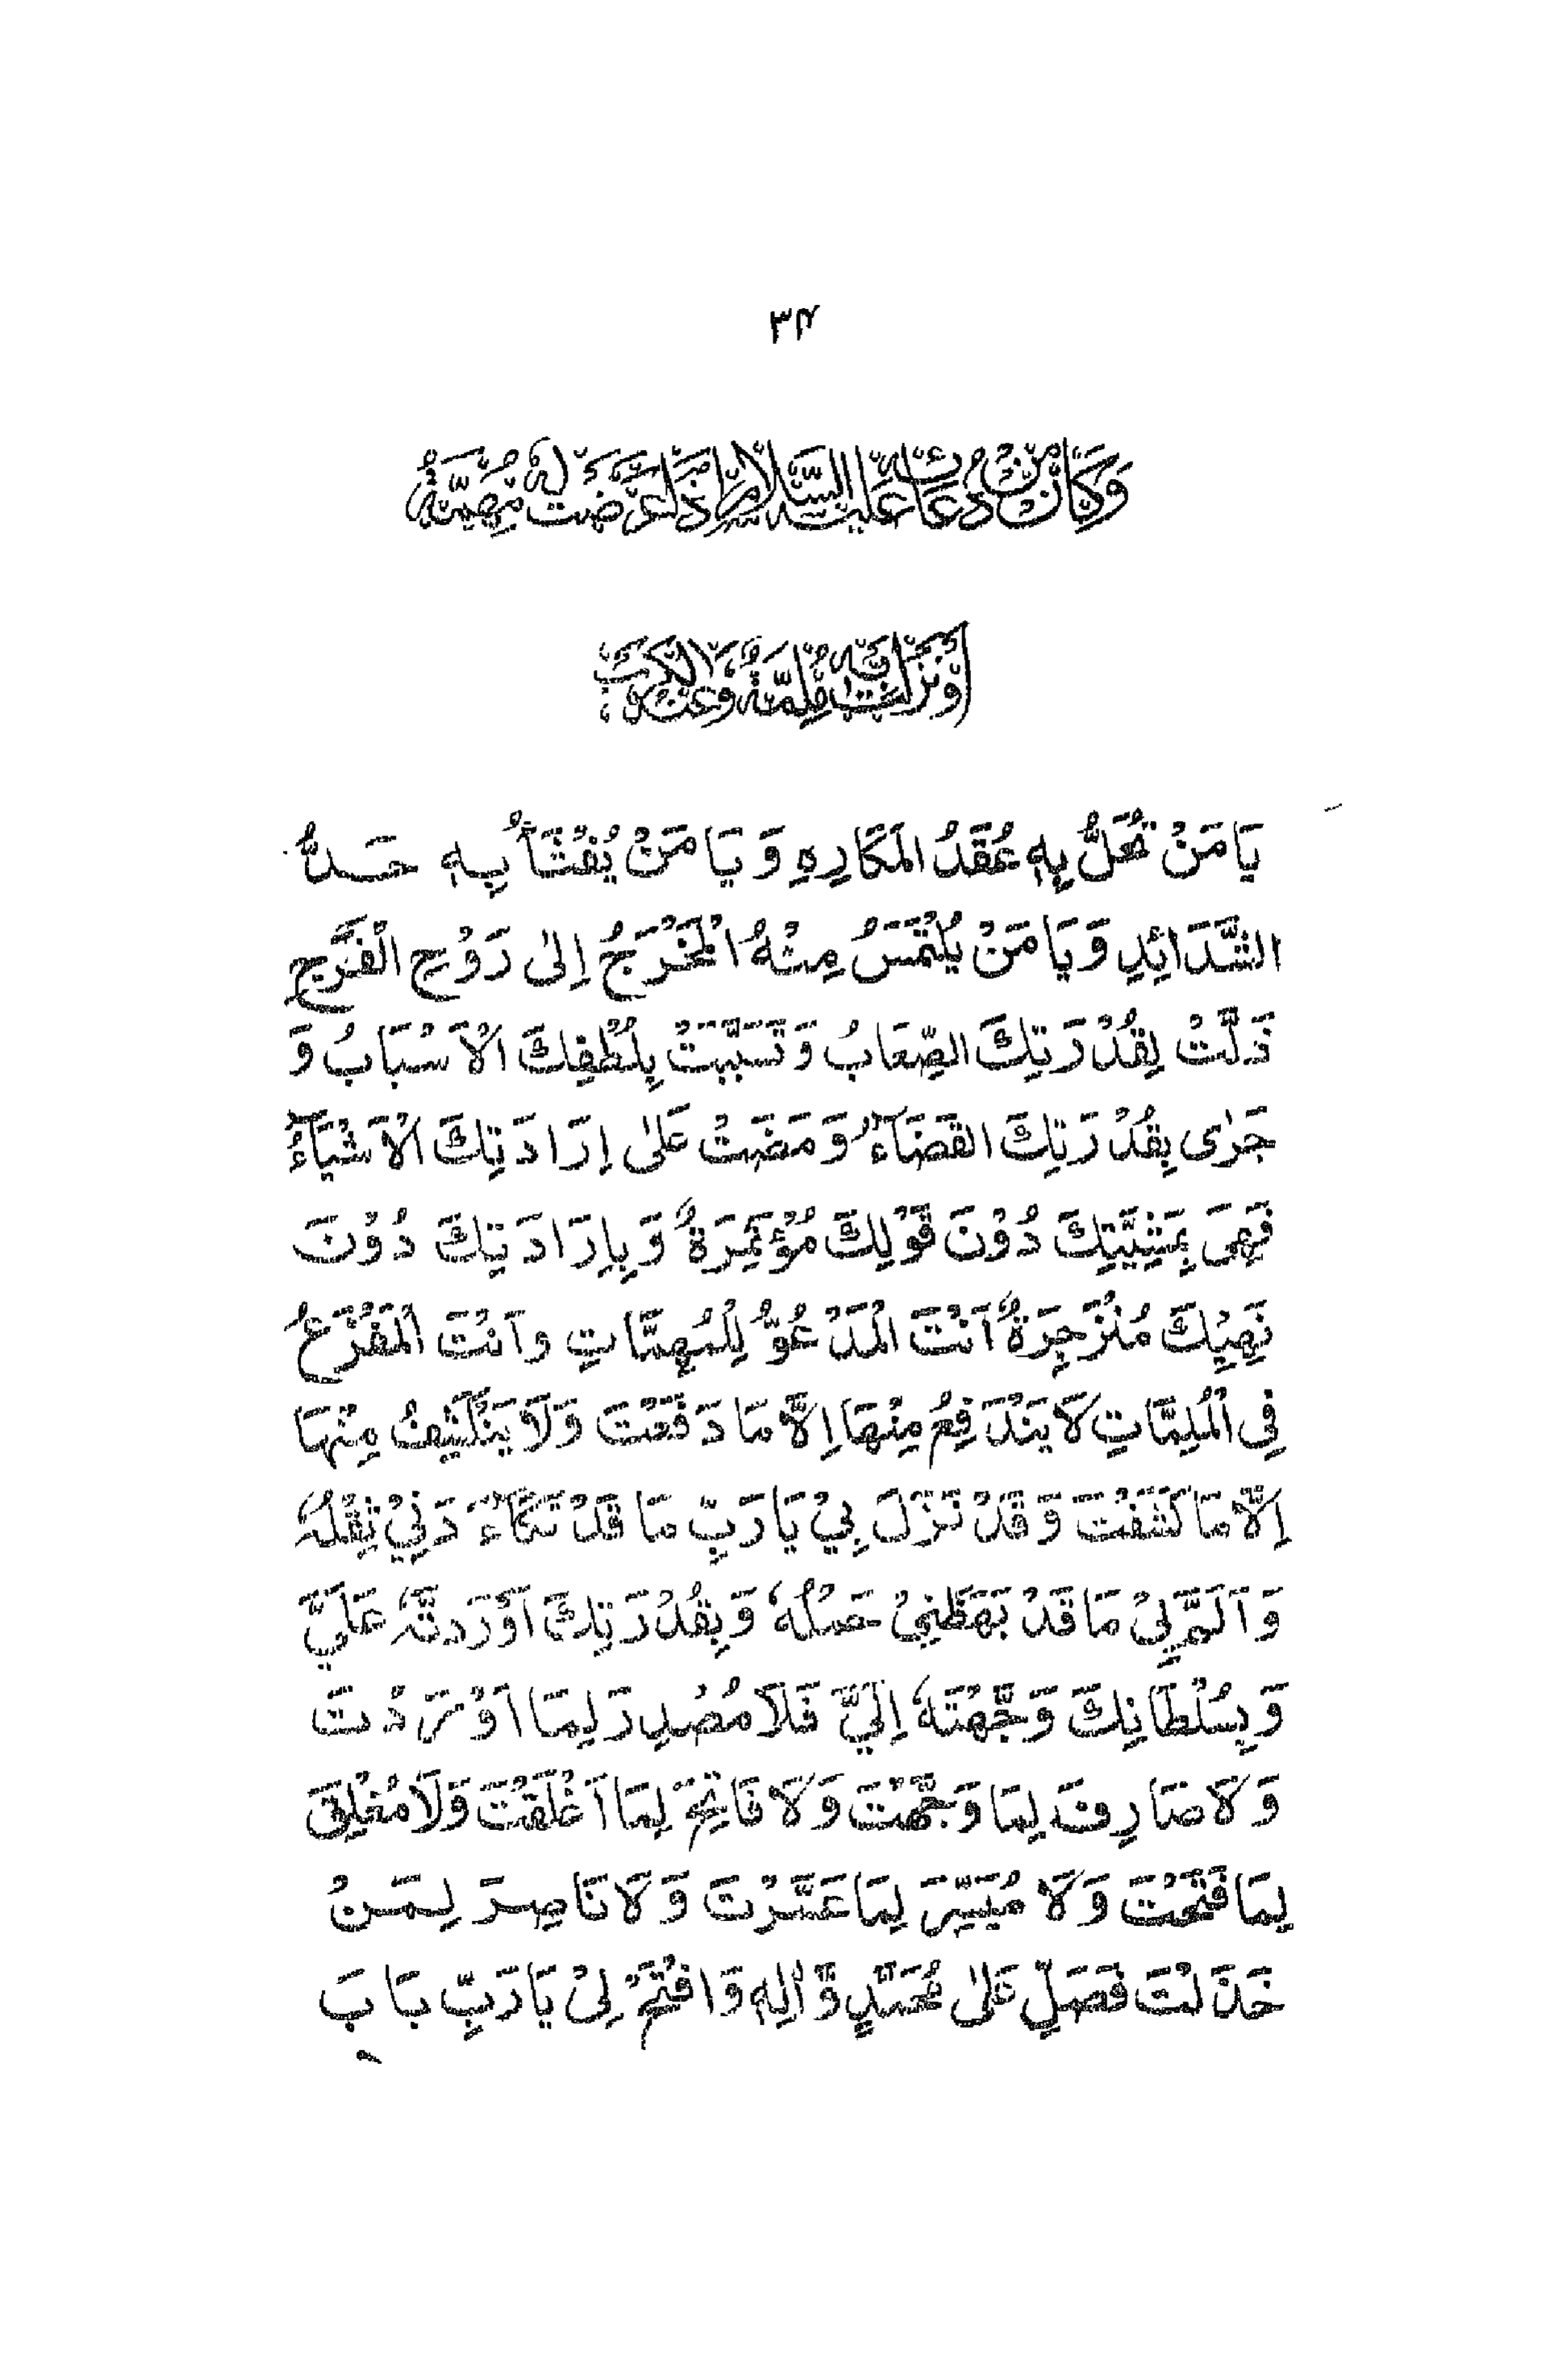 ۳۴
وَكَانَ مِنْ دُعَائِهٖ عَلَيْهِ السَّلَامُ اِذَا عَرَضَتْ لَهٗ مُهِمَّةٌ
اَوْ نَزَلَتْ بِهٖ مُلِمَّةٌ وَعِنْدَ الْكَرْبِ
يَا مَنْ تُحَلُّ بِهٖ عُقَدُ الْمَكَارِهِ وَ يَا مَنْ يُفْثَأُ بِهٖ حَدُّ
الشَّدَائِدِ وَ يَا مَنْ يُلْتَمَسُ مِنْهُ الْمَخْرَجُ اِلٰى رَوْحِ الْفَرَجِ
ذَلَّتْ لِقُدْرَتِكَ الصِّعَابُ وَ تَسَبَّبَتْ بِلُطْفِكَ الْاَسْبَابُ وَ
جَرٰى بِقُدْرَتِكَ الْقَضَآءُ وَ مَضَتْ عَلٰى اِرَادَتِكَ الْاَشْيَآءُ
فَهِىَ بِمَشِيَّتِكَ دُوْنَ قَوْلِكَ مُؤْتَمِرَةٌ وَ بِاِرَادَتِكَ دُوْنَ
نَهْيِكَ مُنْزَجِرَةٌ اَنْتَ الْمَدْعُوُّ لِلْمُهِمَّاتِ وَ اَنْتَ الْمَفْزَعُ
فِى الْمُلِمَّاتِ لَا يَنْدَفِعُ مِنْهَا اِلَّا مَا دَفَعْتَ وَ لَا يَنْكَشِفُ مِنْهَا
اِلَّا مَا كَشَفْتَ وَ قَدْ نَزَلَ بِيْ يَا رَبِّ مَا قَدْ تَكَاءَدَنِيْ ثِقْلُهٗ
وَ اَلَمَّ بِيْ مَا قَدْ بَهَظَنِيْ حَمْلُهٗ وَ بِقُدْرَتِكَ اَوْرَدْتَّهٗ عَلَيَّ
وَ بِسُلْطَانِكَ وَجَّهْتَهٗ اِلَيَّ فَلَا مُصْدِرَ لِمَا اَوْرَدْتَ
وَ لَا صَارِفَ لِمَا وَجَّهْتَ وَ لَا فَاتِحَ لِمَا اَغْلَقْتَ وَ لَا مُغْلِقَ
لِمَا فَتَحْتَ وَ لَا مُيَسِّرَ لِمَا عَسَّرْتَ وَ لَا نَاصِرَ لِمَنْ
خَذَلْتَ فَصَلِّ عَلٰى مُحَمَّدٍ وَّ اٰلِهٖ وَ افْتَحْ لِىْ يَا رَبِّ بَابَ